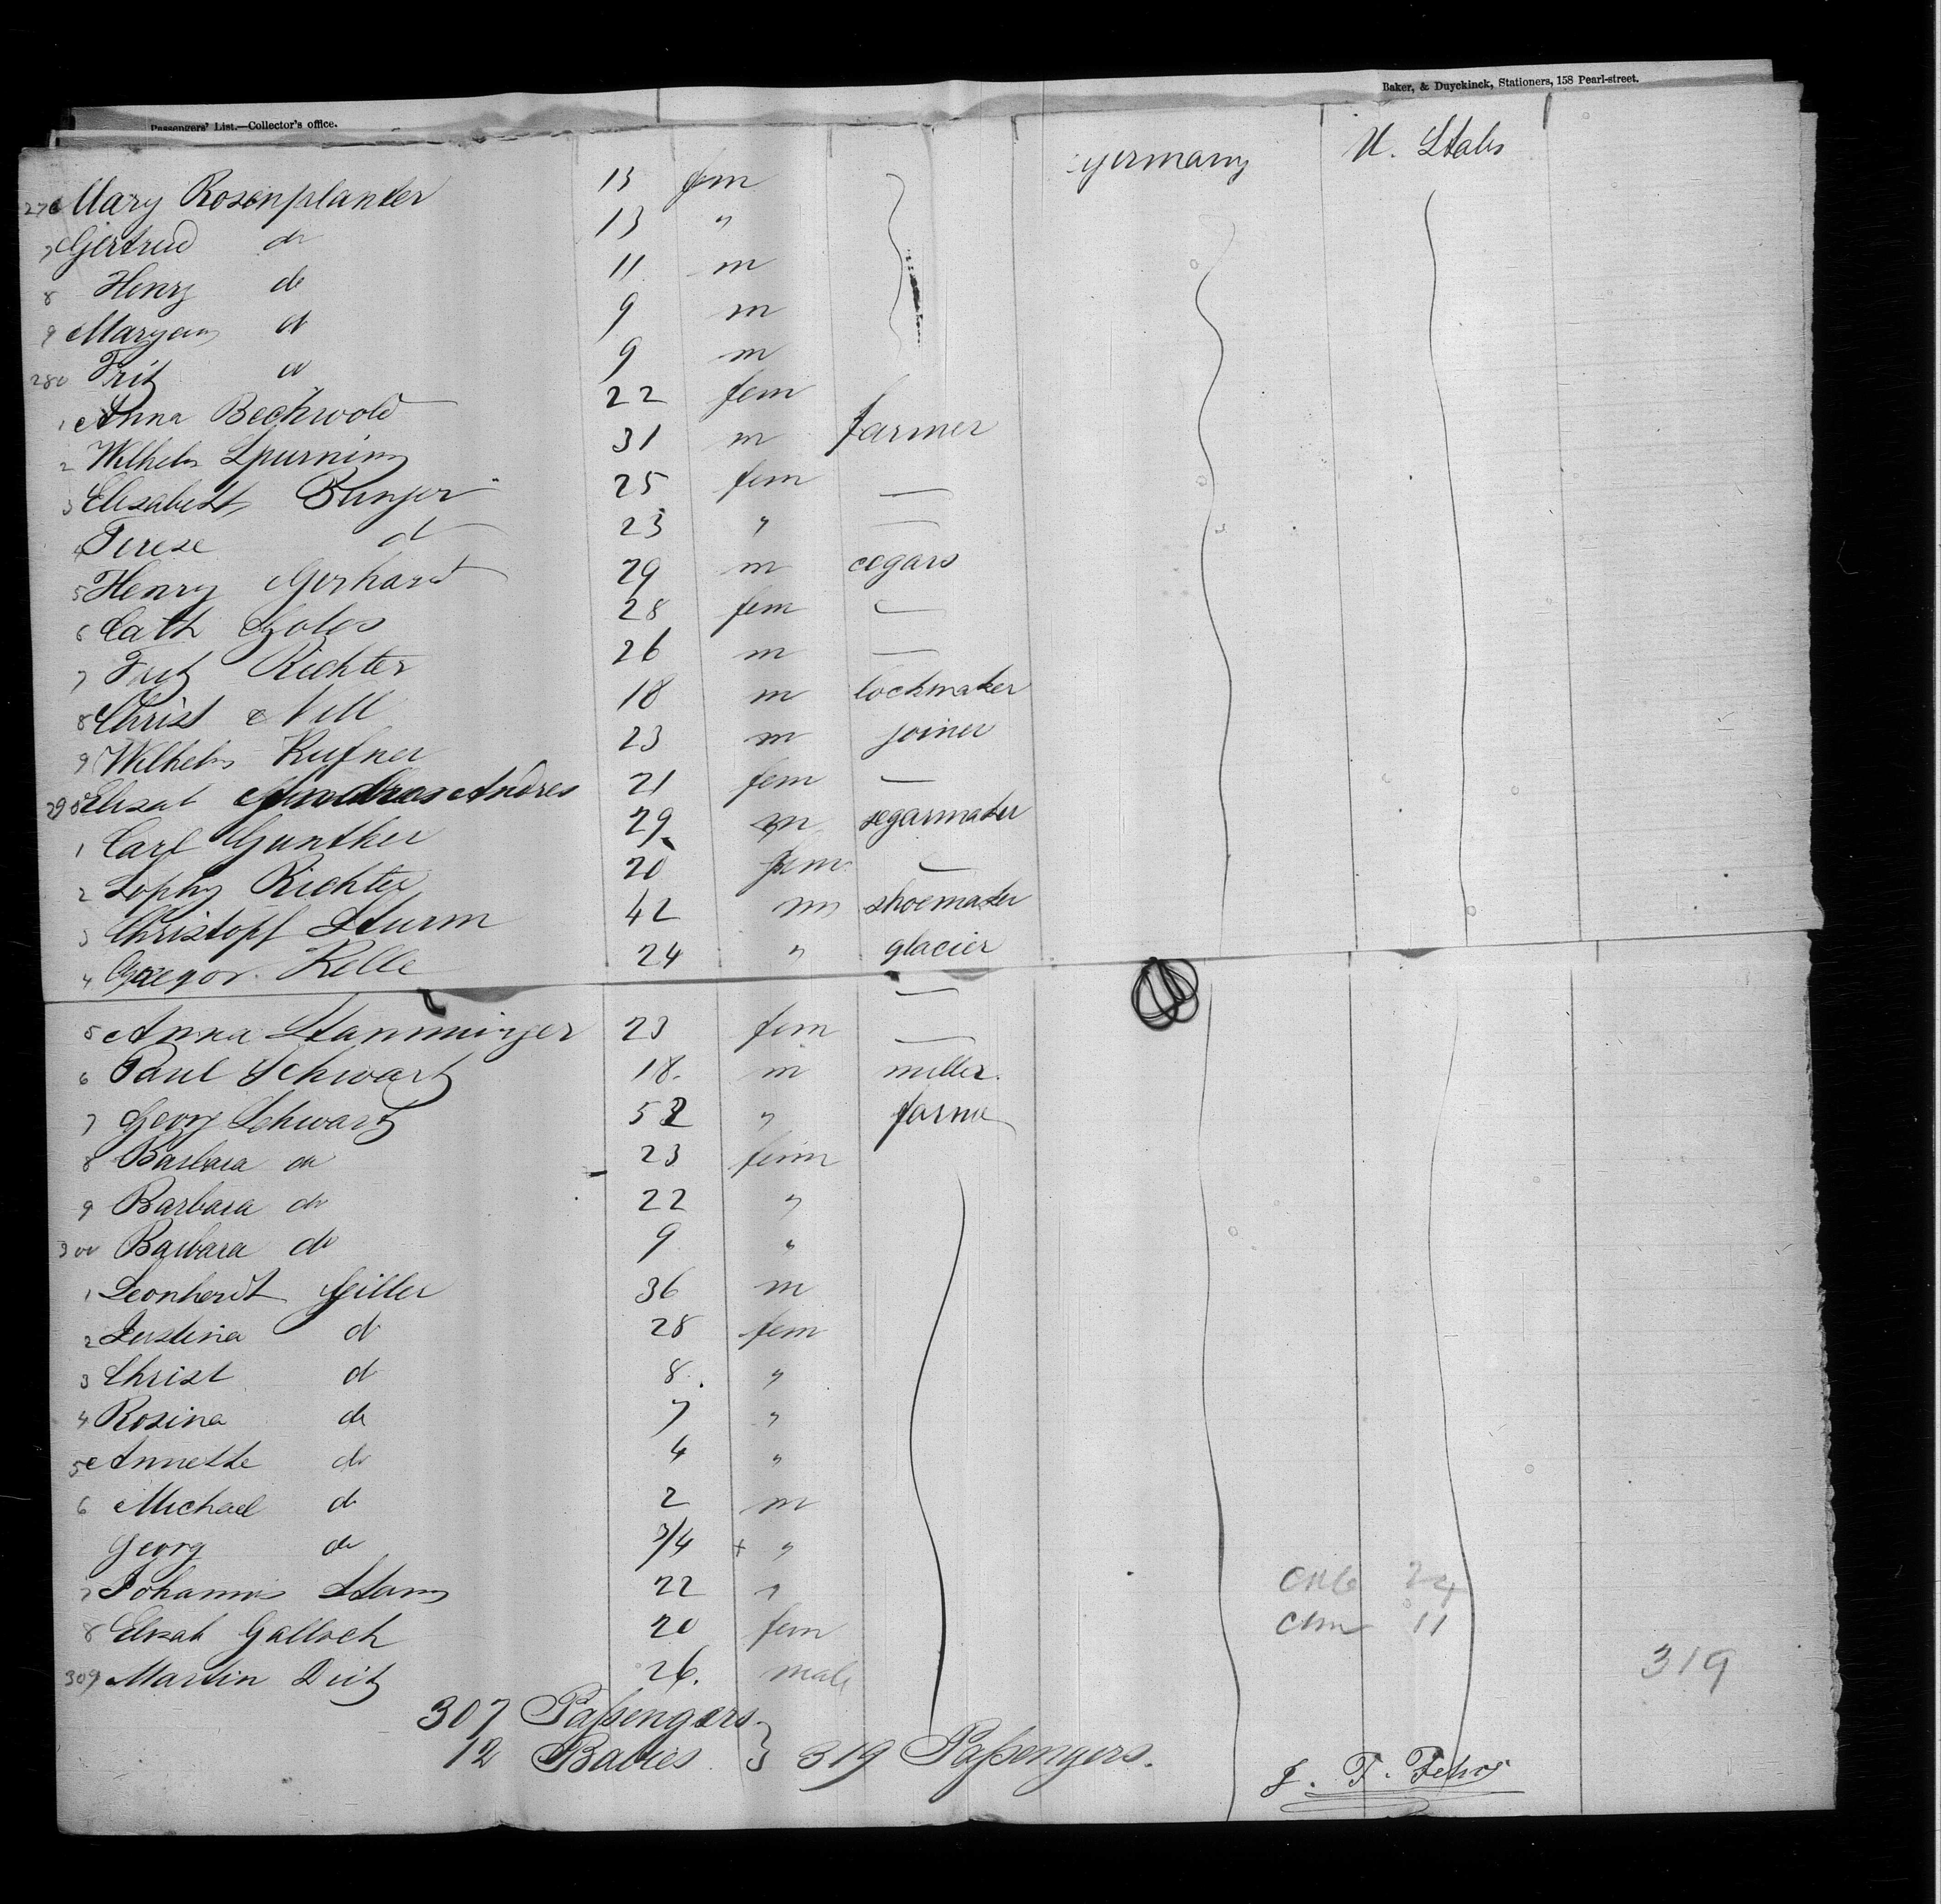 Baker, & Duyckinck, Stationers, 158 Pearl-street.
Passengers' List.—Collector's office.
276 Mary Rosenplanter 13 fem Germany U. States
7 Gertrud do 13 "
8 Henry do 11 m
9 Maryan do 9 m
280 Fritz do 9 m
1 Anna Beckwold 22 fem
2 Wilhelm Spurning 31 m farmer
3 Elisabeth Bunger 25 fem —
4 Terese do 23 " —
5 Henry Gerhard 29 m cegars
6 Cath 28 fem —
7 Fritz Richter 26 m —
8 Christ Nell 18 m lockmaker
9 Wilhelm Kufner 23 m joiner
290 Elisab Andres 21 fem —
1 Carl Gunther 29 m segarmaker
2 Sophy Richter 20 fem —
3 Christopf Sturm 42 m shoemaker
4 Gregor Kelle 24 " glacier
—
5 Anna Stamminger 23 fem —
6 Paul Schwartz 18. m miller.
7 Georg Schwartz 52 " farmer
8 Barbara do 23 fem
9 Barbara do 22 "
300 Barbara do 9 "
1 Leonherdt Hiller 36 m
2 Justina do 28 fem
3 Christ do 8. "
4 Rosina do 7 "
5 Annette do 4 "
6 Michael do 2 m
Georg do 3/4 + "
7 Johannis Stam 22 "
8 Elisab Galloch 20 fem
309 Martin Deitz 26. male
24
11
319
307 Passengers
12 Babies } 319 Passengers.